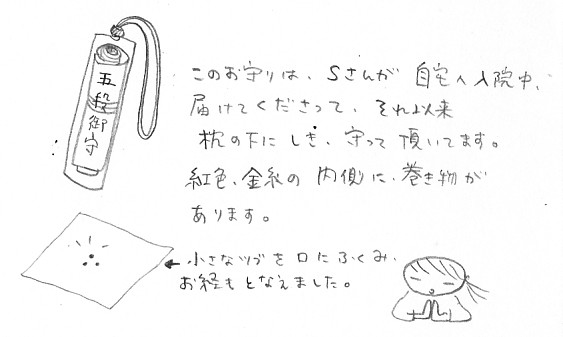 五段御守
このお守りは、Sさんが 自宅へ入院中、
届けてくださって、それ以来
枕の下にしき、守って頂いてます。
紅色、金糸の 内側に、巻き物が
あります。
←小さなツブを口にふくみ、
お経もとなえました。